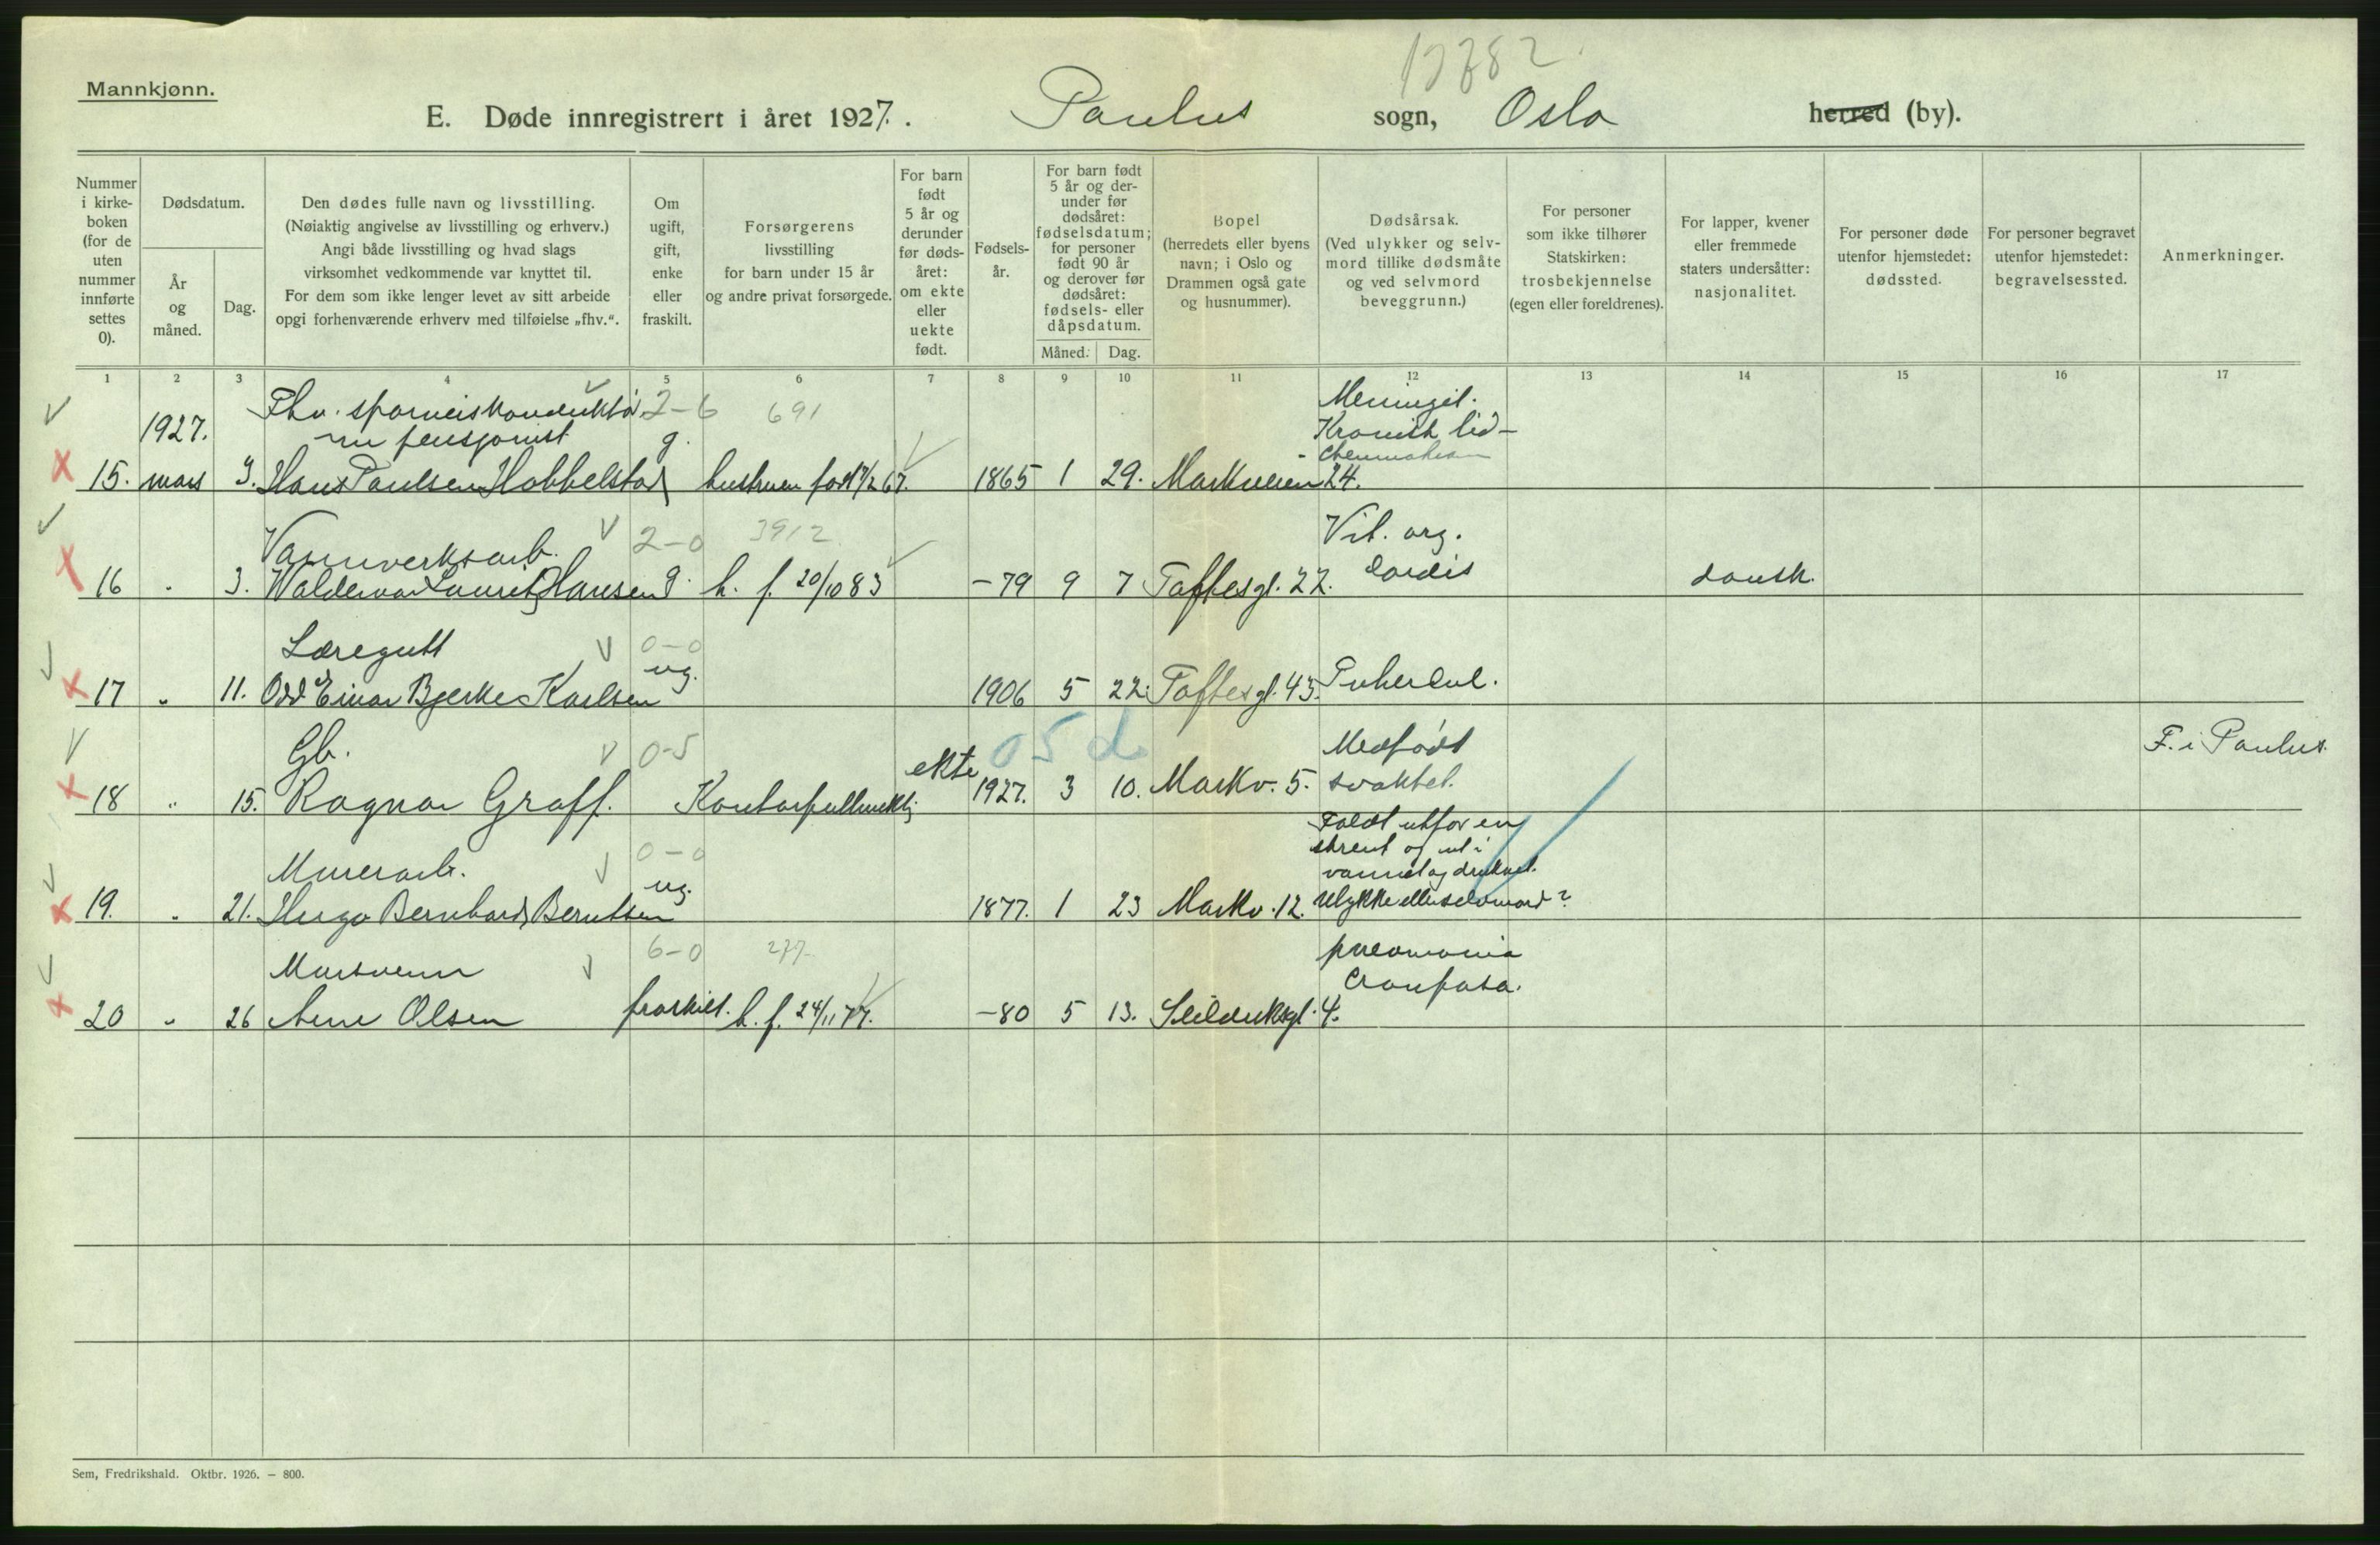 17782.
Mannkjønn.
E. Døde innregistrert i året 1927. Paulus sogn, Oslo herred (by).
Nummer i kirke-boken (for de uten nummer innførte settes 0).
Dødsdatum.
År og måned.
Dag.
Den dødes fulle navn og livsstilling.
(Nøiaktig angivelse av livsstilling og erhverv.)
Angi både livsstilling og hvad slags
virksomhet vedkommende var knyttet til.
For dem som ikke lenger levet av sitt arbeide
opgi forhenværende erhverv med tilføielse „fhv.“.
Om ugift, gift, enke eller fraskilt.
Forsørgerens
livsstilling
for barn under 15 år
og andre privat forsørgede.
For barn født 5 år og derunder før døds-året: om ekte eller uekte født.
Fødsels-år.
For barn født 5 år og der-under før dødsåret: fødselsdatum; for personer født 90 år og derover før dødsåret: fødsels- eller dåpsdatum.
Måned.
Dag.
Bopel
(herredets eller byens navn; i Oslo og Drammen også gate og husnummer).
Dødsårsak.
(Ved ulykker og selv-mord tillike dødsmåte og ved selvmord beveggrunn.)
For personer som ikke tilhører Statskirken: trosbekjennelse (egen eller foreldrenes).
For lapper, kvener eller fremmede staters undersåtter: nasjonalitet.
For personer døde utenfor hjemstedet: dødssted.
For personer begravet utenfor hjemstedet: begravelsessted.
Anmerkninger.
1 2 3 4 5 6 7 8 9 10 11 12 13 14 15 16 17
Fhv. sporveiskonduktør 2-6 691 Meningit.
1927. nu pensjonist g. Kronisk lid-
15. mars 3. Hans Paulsen Hobbelstad hustruen født 1865 1 29. Markveien 24.
Vannverksarb. 2-0 3912 Vit. org.
16 " 3. Waldemar Laurits Hansen g. h. f. 20/10 83 -79 9 7 Toftesgt. 22. cordis dansk.
Læregutt 0-0
ug.
17 " 11. Odd Einar Bjerke Karlsen 1906 5 22. Toftesgt. 43. Tuberkul.
Gb. 0-5 05 d Medfødt F. i Paulus.
18 " 15. Ragnar Graff. Kontorfullmektig ekte 1927. 3 10. Markv. 5. svakhet.
Faldt utfor en
skrent og ut i
Murerarb. 0-0 vannet og druknet.
19. " 21. Hugo Bernhard Berntsen ug. 1877. 1 23 Markv. 12. Ulykke eller selvmord?
Mursvenn 6-0 277. pneumonia
crouposa.
20 " 26 Arne Olsen fraskilt. h. f. 24/11 77. -80 5 13. Seilduksgt. 4.
Sem, Fredrikshald. Oktbr. 1926. — 800.